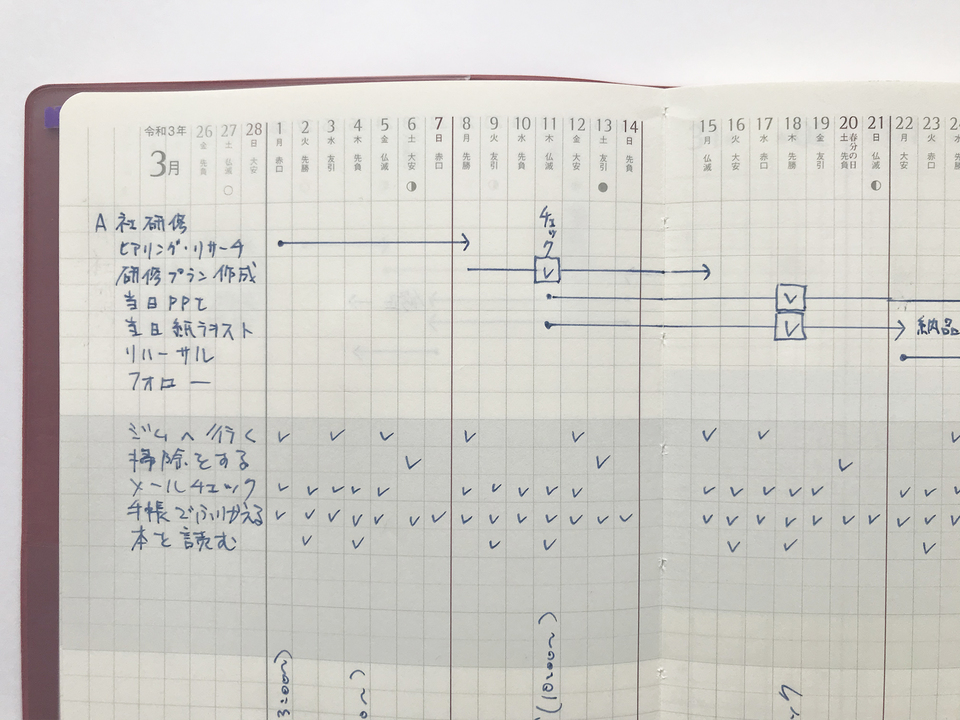 令和3年
3月
26 27 28 1 2 3 4 5 6 7 8 9 10 11 12 13 14 15 16 17 18 19 20 21 22 23
金 土 日 月 火 水 木 金 土 日 月 火 水 木 金 土 日 月 火 水 木 金 土 日 月 火
先負 仏滅 大安 赤口 先勝 友引 先負 仏滅 大安 赤口 先勝 友引 先負 仏滅 大安 赤口 先勝 仏滅 大安 赤口 先勝 友引 先負 仏滅 大安 赤口
春分の日
チェック
A社研修
ヒアリング・リサーチ
研修プラン作成
当日PPt
当日紙テキスト
納品
リハーサル
フォロー
ジムへ行く
掃除をする
メールチェック
手帳でふりかえる
本を読む
(10:00〜)